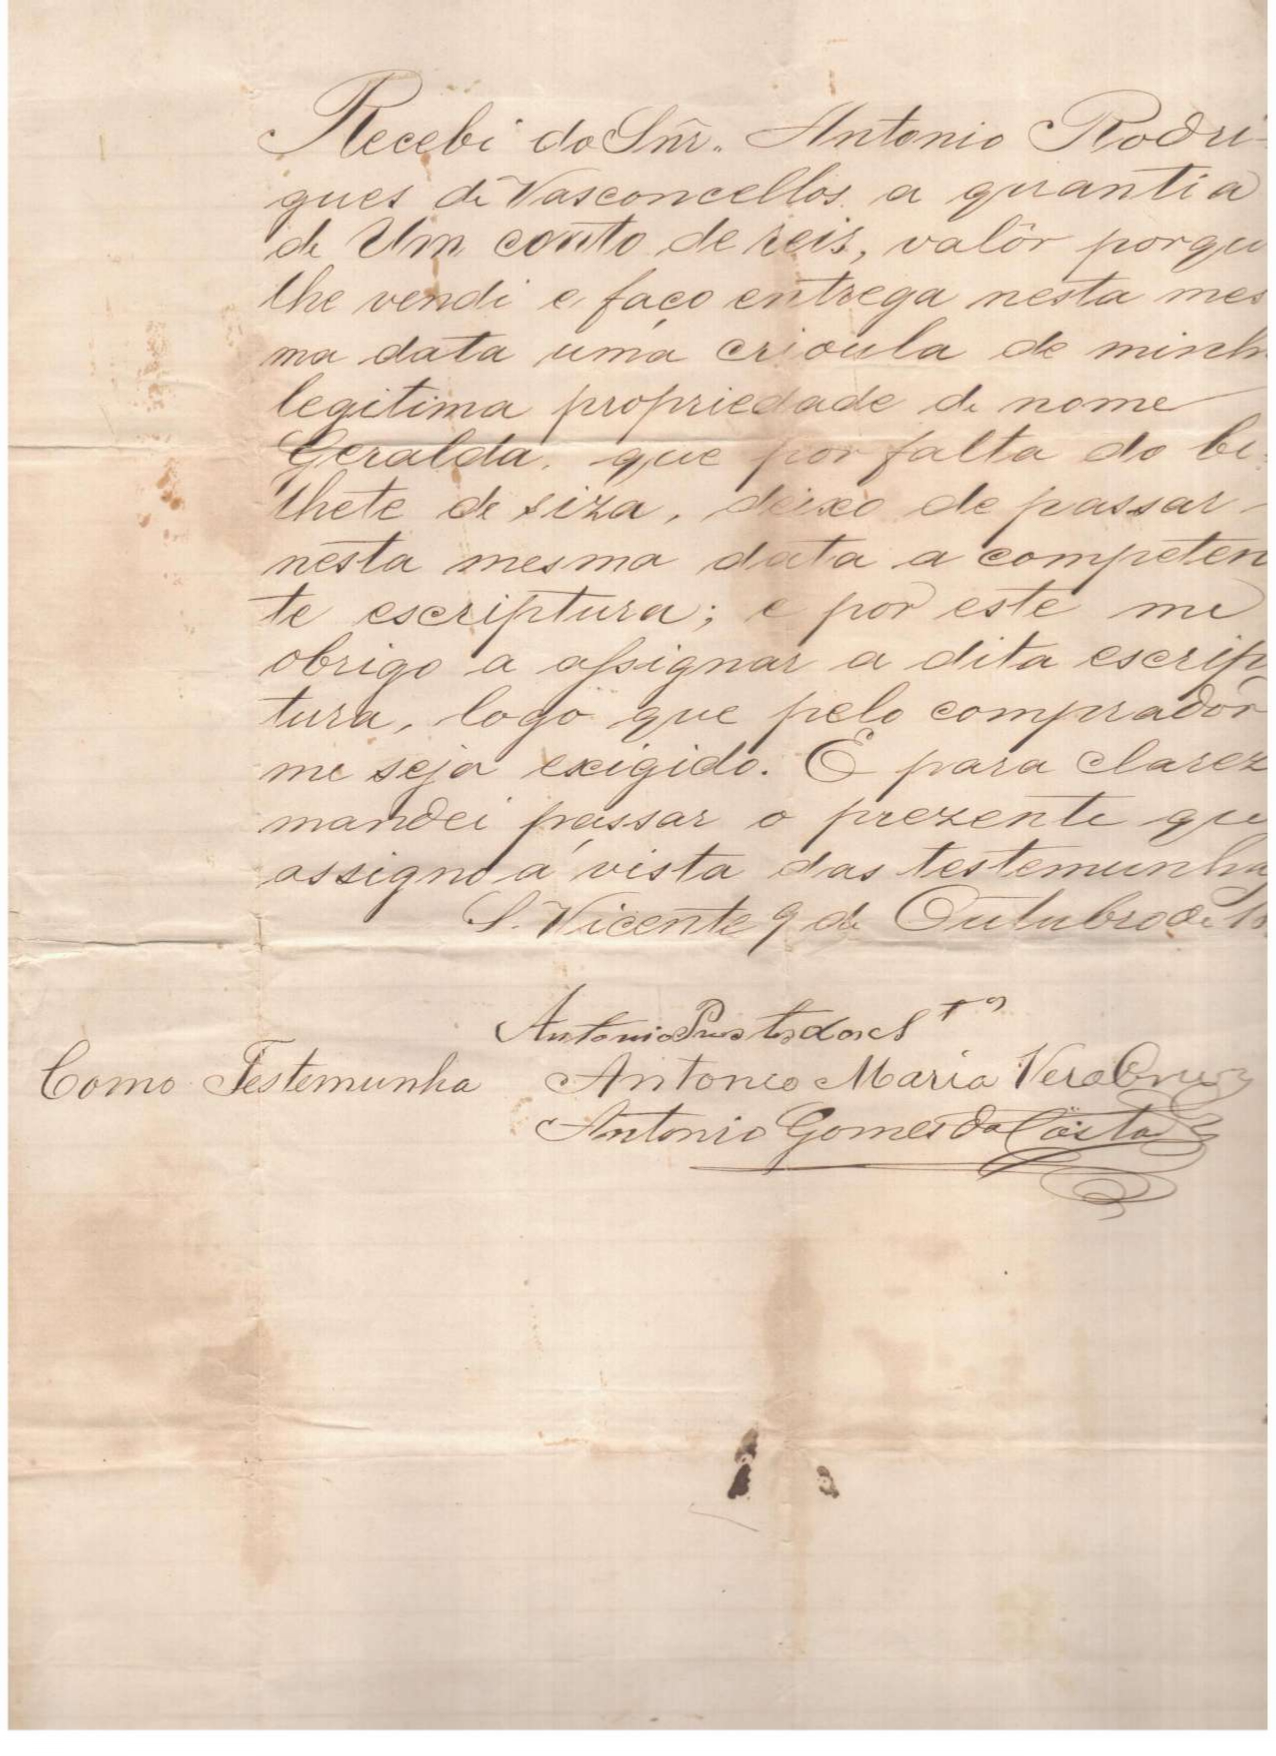 Recebi do Snr. Antonio Rodri-
gues de Vasconcellos a quantia
de Um conto de reis, valôr porque
lhe vendi e faço entrega nesta mes
ma data uma crioula de minh
legitima propriedade de nome
Geralda, que por falta do bi-
lhete de siza, deixo de passar
nesta mesma data a competen
te escriptura; e por este me
obrigo a assignar a dita escrip
tura, logo que pelo compradôr
me seja exigido. E para clarez
mandei passar o prezente que
assigno á vista das testemunha
S. Vicente 9 de Outubro de 18
Antonio dos S.tos
Como Testemunha Antonio Maria Vera Cruz
Antonio Gomes da Costa